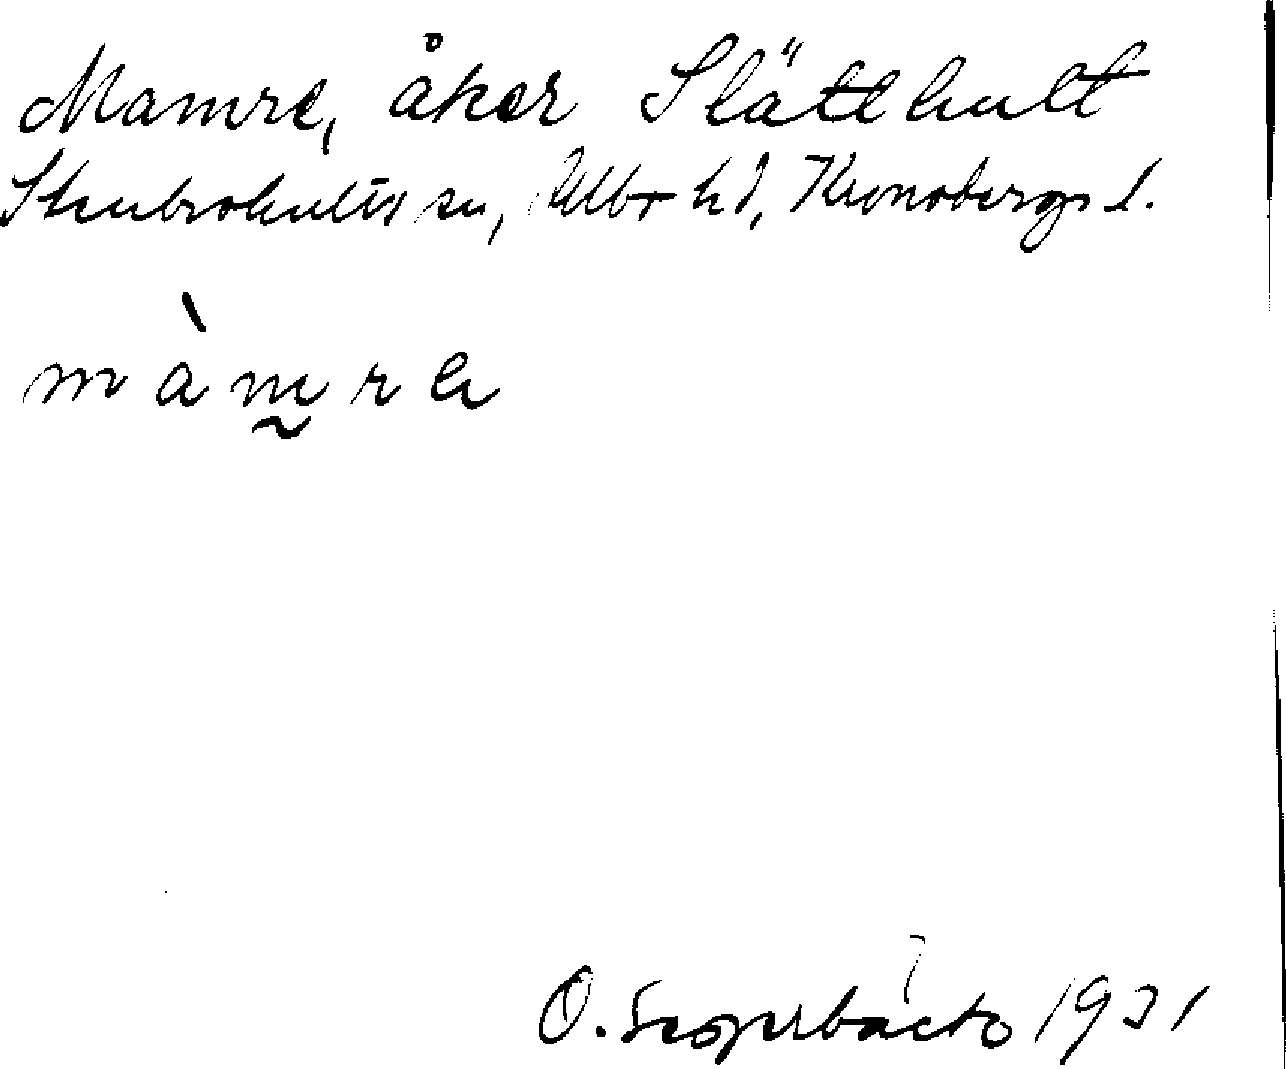 Mamre, åker Slätthult
Stenbrohults sn, Allbo hd, Kronobergs l.
màmre
O. 1931